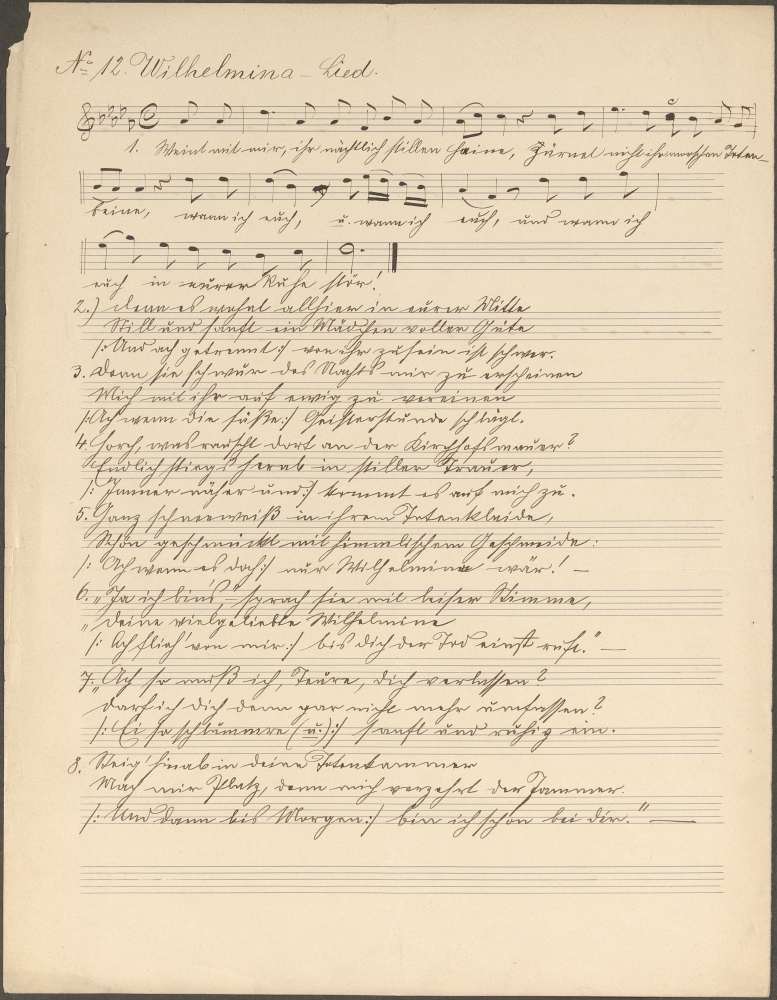 No 12. Wilhelmina - Lied.
1. Weint mit mir, ihr nächtlich stillen Haine, Zürnet nicht ihr morschen Toten-
beine, wann ich euch, u. wann ich euch, und wann ich
euch in eurer Ruhe stör!
2.) denn es wohnt allhier in eurer Mitte
Still und sanft ein Mädchen voller Güte
/: Und ach getrennt :/ von ihr zu sein ist schwer.
3. Denn sie schwur des Nachts mir zu erscheinen
Mich mit ihr auf ewig zu vereinen
/: Ach wenn die süße :/ Geisterstunde schlägt.
4. Horch, was rauscht dort an der Kirchhofsmauer?
Endlich stiegs herab in stiller Trauer,
/: Immer näher und :/ kommt es auf mich zu.
5. Ganz schneeweiß in ihrem Totenkleide,
Schön geschmückt mit himmlischem Geschmeide:
/: Ach wenn es doch :/ nur Wilhelmine wär! —
6. „Ja ich bin's," sprach sie mit leiser Stimme,
„Deine vielgeliebte Wilhelmine
/: Ach flieh' von mir :/ bis dich der Tod einst ruft." —
7. „Ach so muß ich, Teure, dich verlassen?
Darf ich dich denn gar nicht mehr umfassen?
/: Ei so schlummre (u.) :/ sanft und ruhig ein.
8. Steig' hinab in deine Totenkammer
Mach mir Platz, denn mich verzehrt der Jammer.
/: Und dann bis Morgen :/ bin ich schon bei dir." —